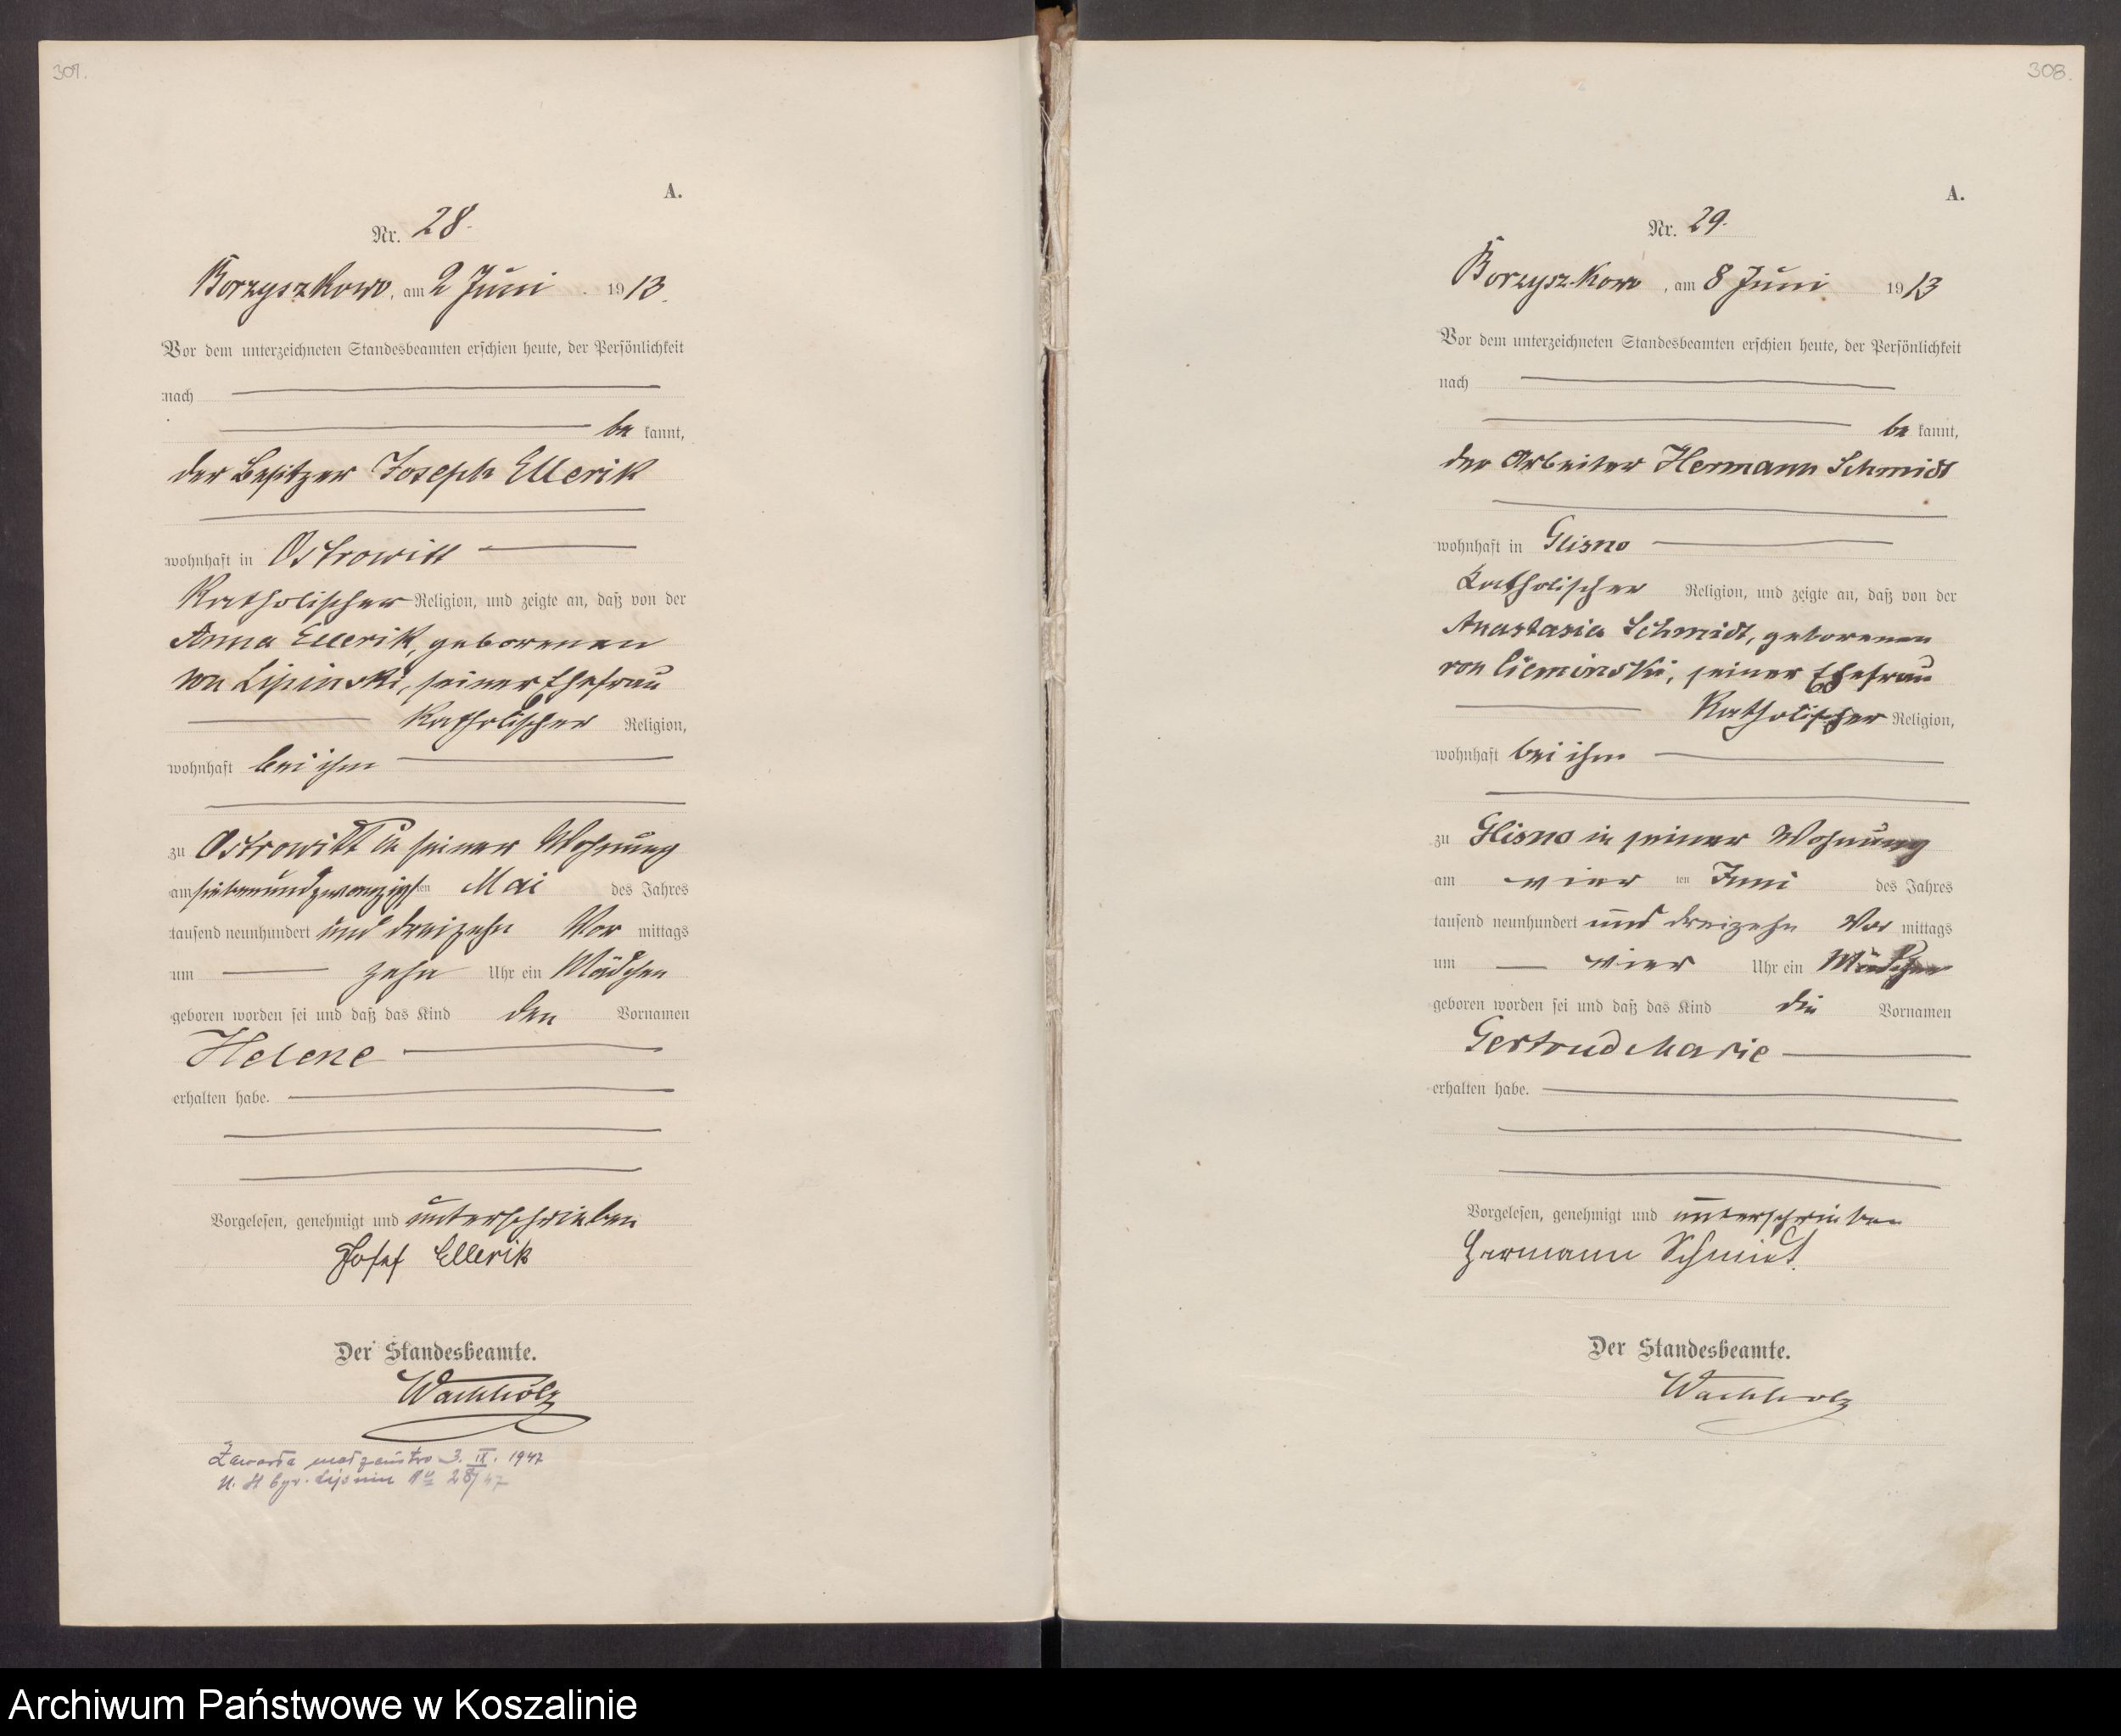 307.
A.
Nr. 28.
Borzyszkowo, am 2 Juni 1913.
Vor dem unterzeichneten Standesbeamten erschien heute, der Persönlichkeit
nach
be kannt,
der Besitzer Joseph Ellerik
wohnhaft in Ostrowitt
katholischer Religion, und zeigte an, daß von der
Anna Ellerik, geborenen
von Lipinski, seiner Ehefrau
katholischer Religion,
wohnhaft bei ihm
zu Ostrowitt in seiner Wohnung
am siebenundzwanzigsten Mai des Jahres
tausend neunhundert und dreizehn Vor mittags
um zehn Uhr ein Mädchen
geboren worden sei und daß das Kind den Vornamen
Helene
erhalten habe.
Vorgelesen, genehmigt und unterschrieben
Josef Ellerik
Der Standesbeamte.
Wachholz
Zawarła małżeństwo 3. IX. 1947
28/47
308.
A.
Nr. 29.
Borzyszkowo, am 8 Juni 1913
Vor dem unterzeichneten Standesbeamten erschien heute, der Persönlichkeit
nach
be kannt,
der Arbeiter Hermann Schmidt
wohnhaft in Glisno
katholischer Religion, und zeigte an, daß von der
Anastasia Schmidt, geborenen
von Cieminski, seiner Ehefrau
katholischer Religion,
wohnhaft bei ihm
zu Glisno in seiner Wohnung
am vier ten Juni des Jahres
tausend neunhundert und dreizehn Vor mittags
um vier Uhr ein Mädchen
geboren worden sei und daß das Kind die Vornamen
Gertrud Marie
erhalten habe.
Vorgelesen, genehmigt und unterschrieben
Hermann Schmidt.
Der Standesbeamte.
Wachholz
Archiwum Państwowe w Koszalinie